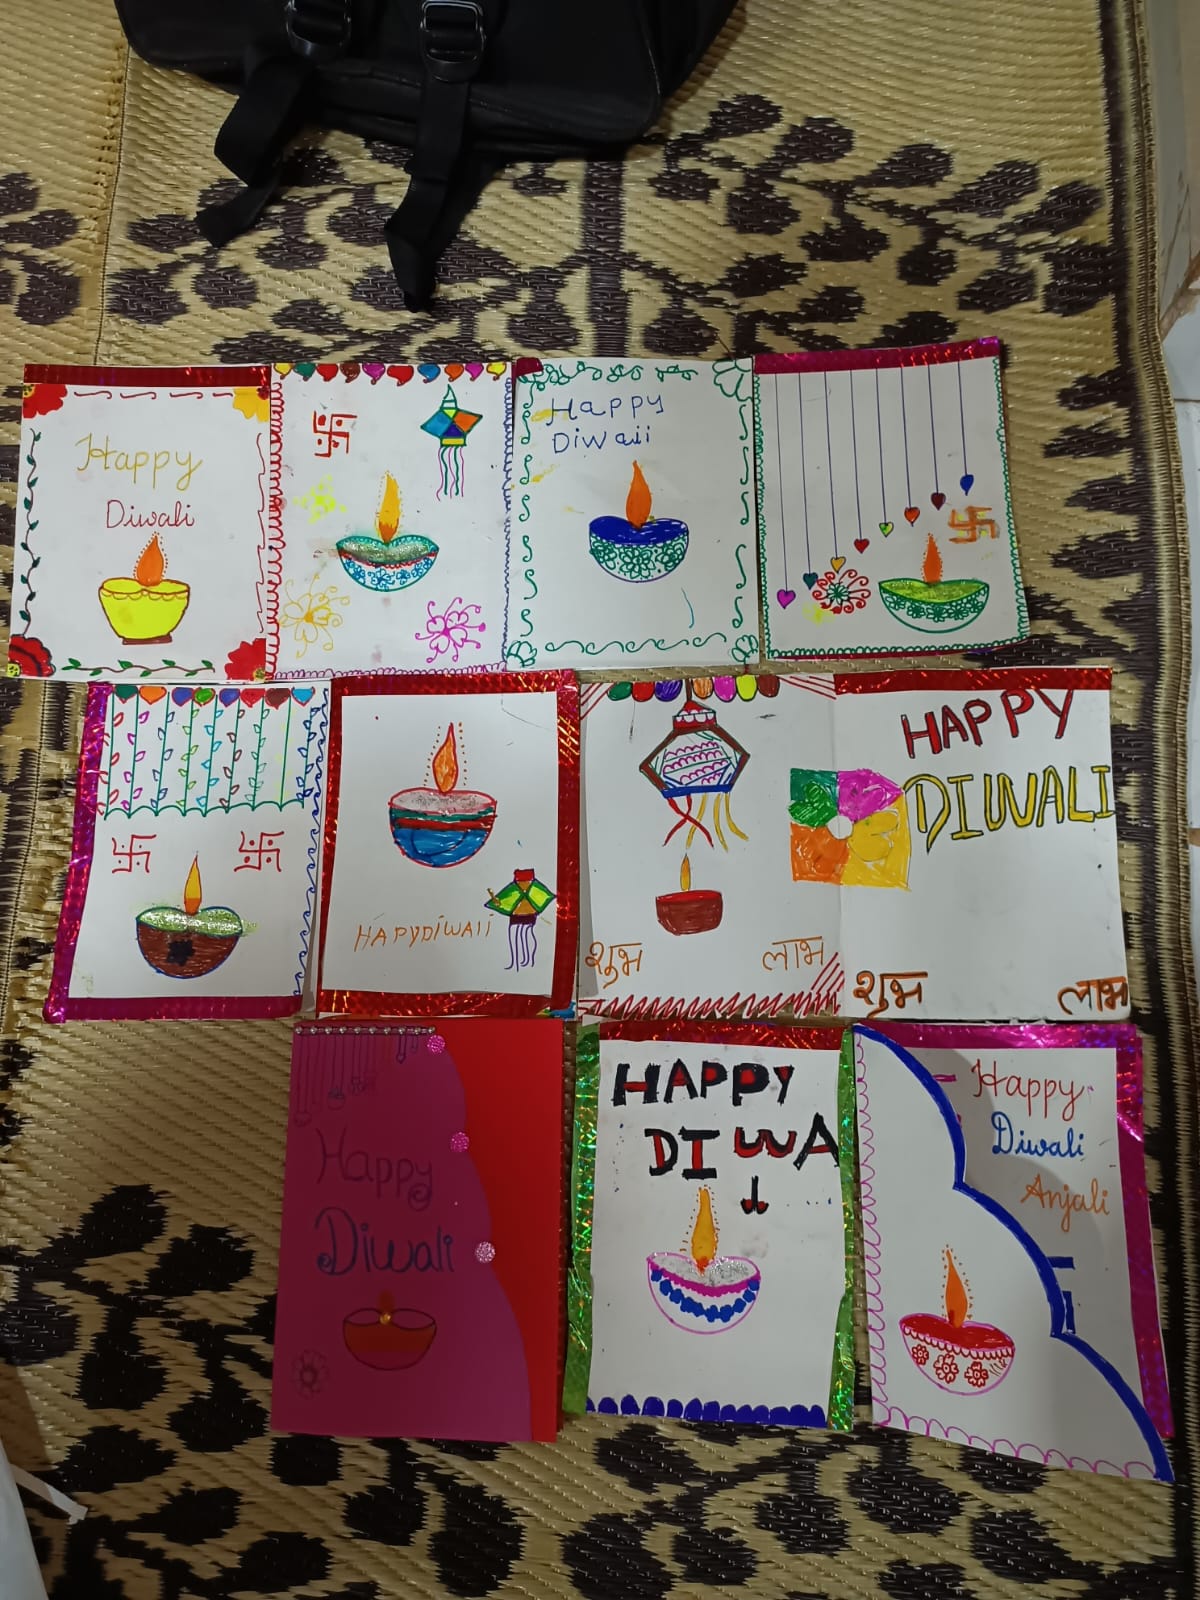 Happy
Diwali
Happy
Diwali
HAPYDIWAII
शुभ
लाभ
HAPPY
DIWALI
शुभ
लाभ
Happy
Diwali
HAPPY
DIWA
L
Happy
Diwali
Anjali